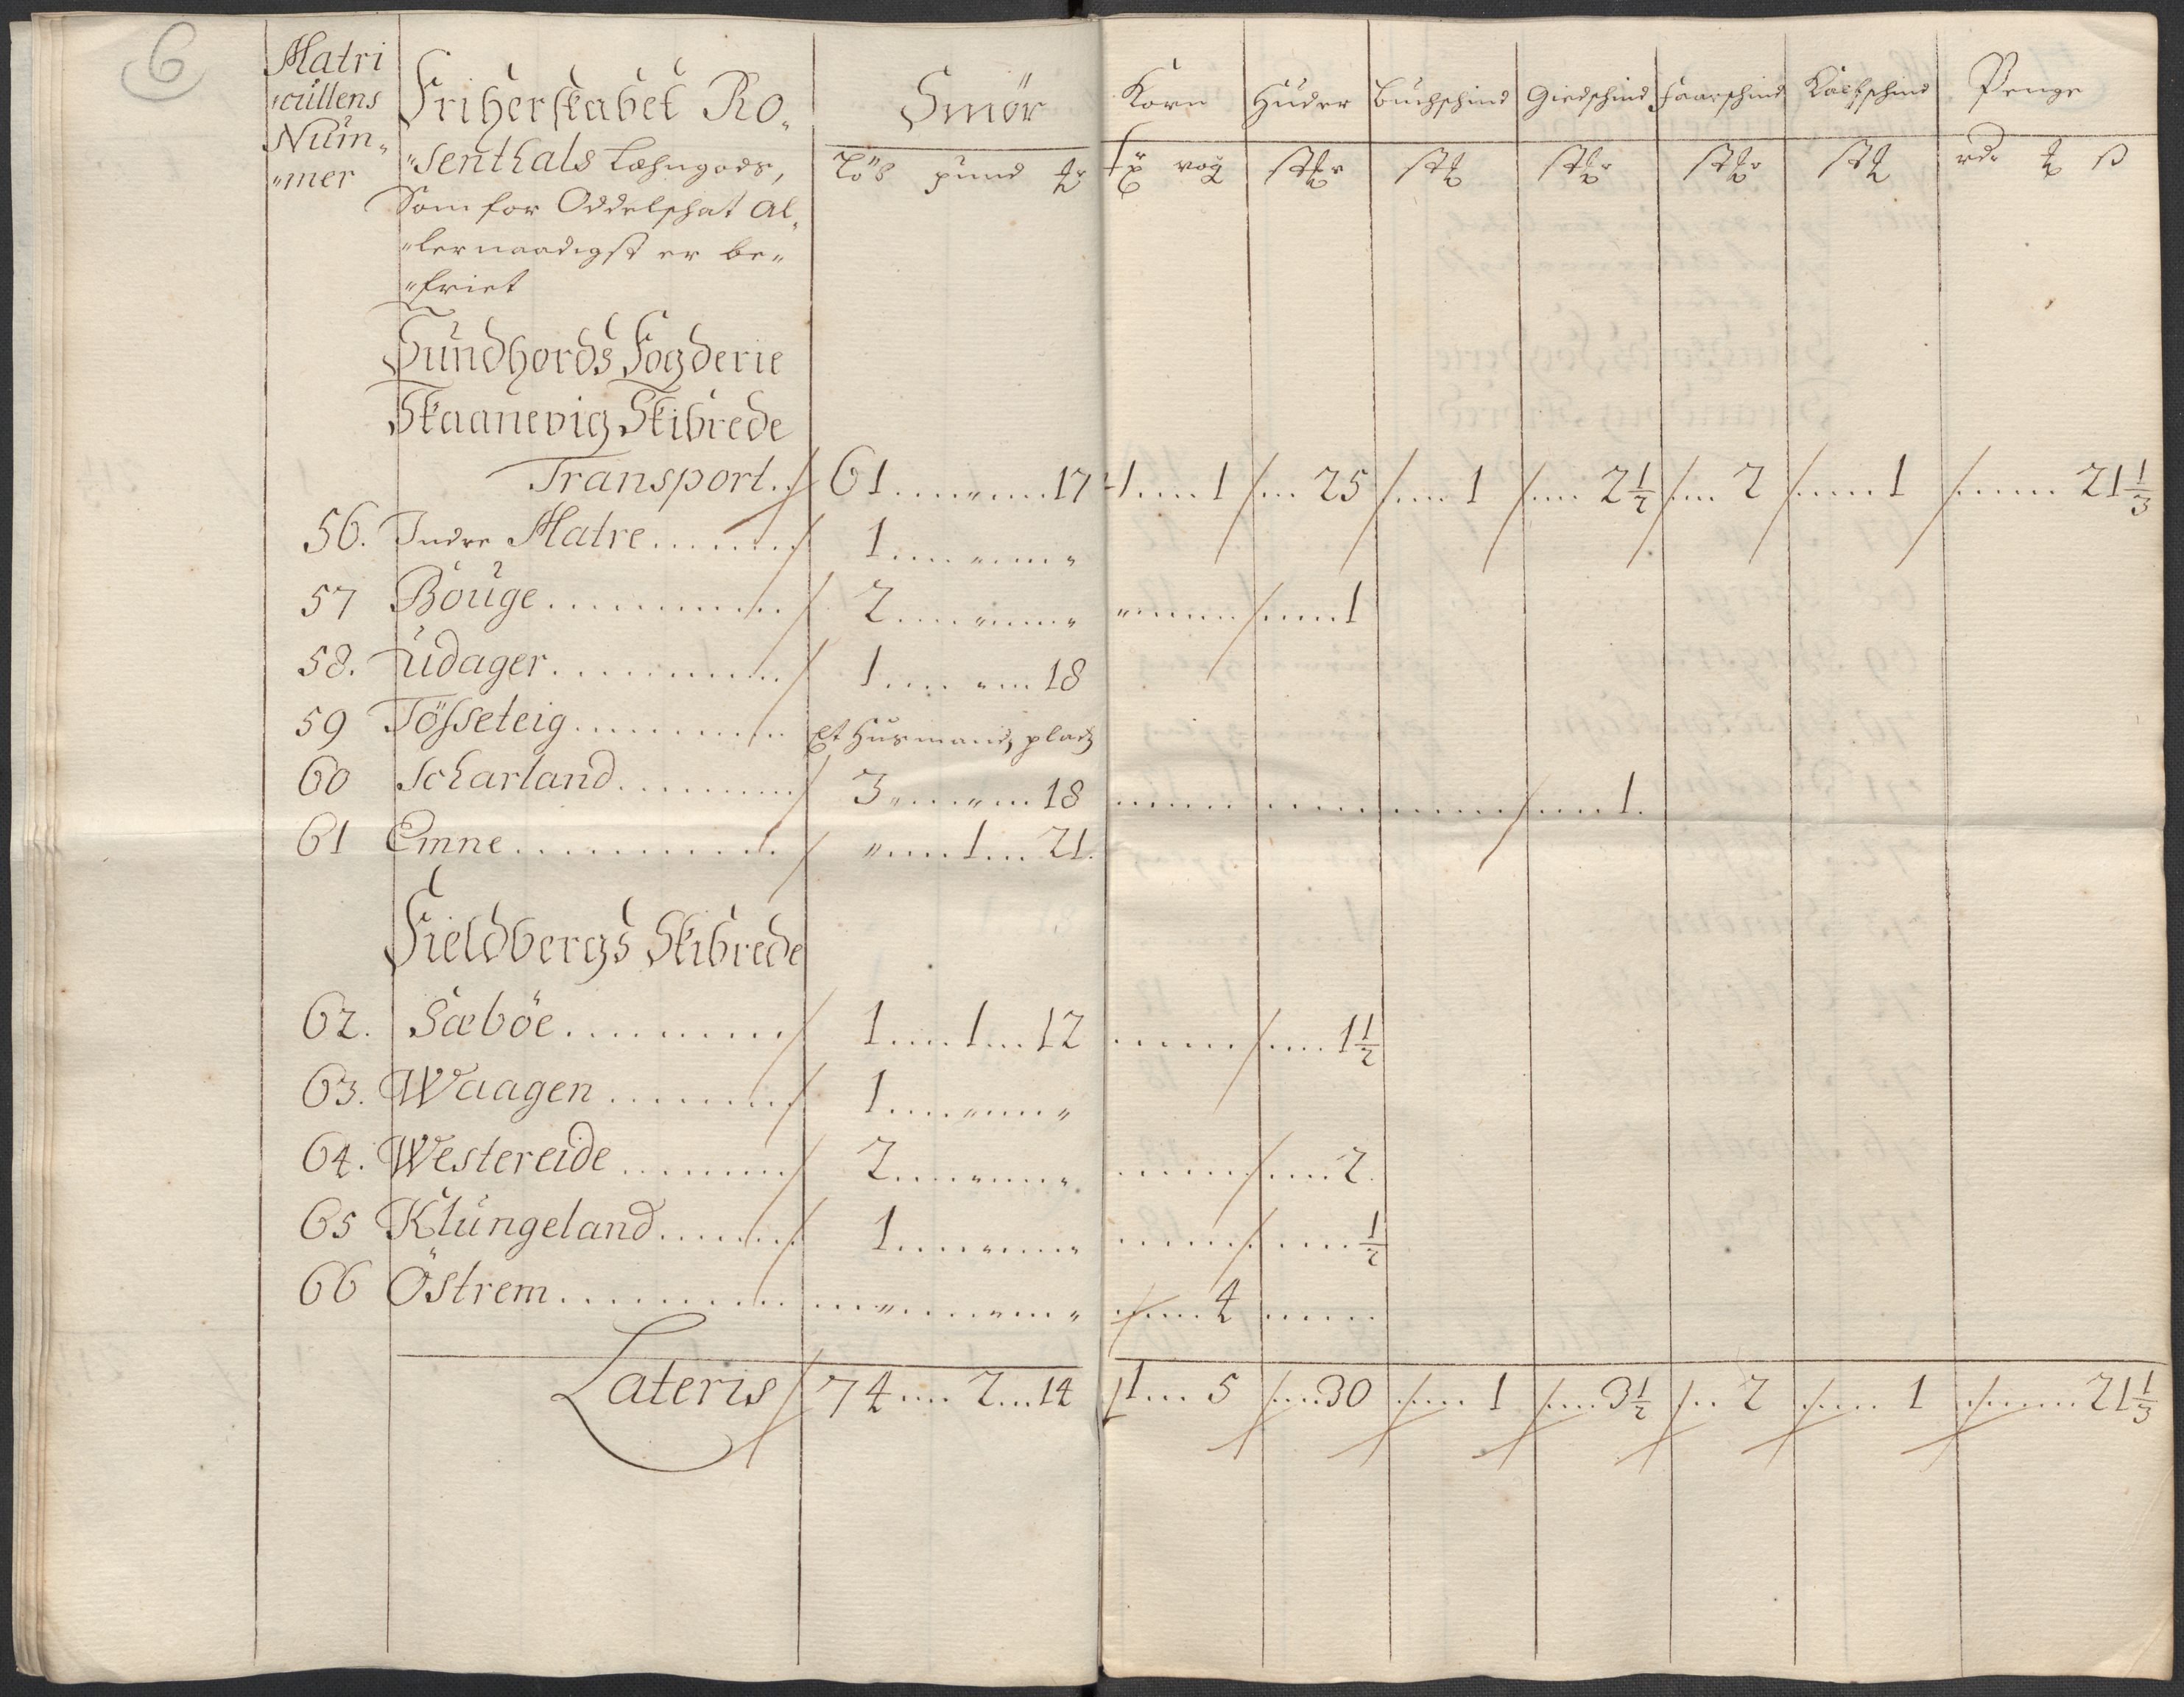 6
Matri
cullens
Num„
„mer
Friherskabet Ro„
„senthals Læhngods,
Som for Oddelschat Al„
„lernaadigst er be„
„friet
Smör
Löb pund
Korn
Huder
Buchschind
Giedschind
Faarschind
Kalfschind
Penge
rdr ß
Sundhords Fogderie
Skaanevig Skibrede
Transport.. 61....„....17 1....1 ... 25 .... 1 .... 2 1/2 ... 2 .... 1 ..... 21 1/3
56. Indre Matre........ 1....„....„
57 Bouge............ 2....„....„ „..... ....1
58. Udager............ 1....„...18
59 Tösseteig........... Et Husmands plads
60 Scharland.......... 3....„...18 ............ ....1.
61 Emne............ „....1...21.
Fieldbergs Skibrede
62. Sæböe.......... 1....1...12 ...... ....1 1/2
63. Waagen........ 1....„....„
64. Westereide......... 2....„....„ ...... ....2.
65 Klungeland....... 1....„....„ ...... .... 1/2
66 Östrem............ ...„....„....„ .....4 ......
Lateris 74....2...14 1...5 ....30 .... 1 ....3 1/2 ... 2 .... 1 ...... 21 1/3